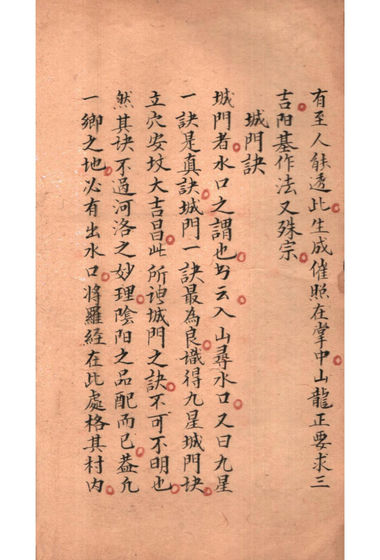 有至人能透此生成催照在掌中山龍正要求三
吉阳基作法又殊宗
城門訣
城門者水口之謂也古云入山尋水口又曰九星
一訣是真訣城門一訣最為良識得九星城門訣
立穴安坟大吉昌此所謂城門之訣不可不明也
然其訣不過河洛之妙理陰阳之品配而已蓋凡
一鄉之地必有出水口將羅經在此處格其村内